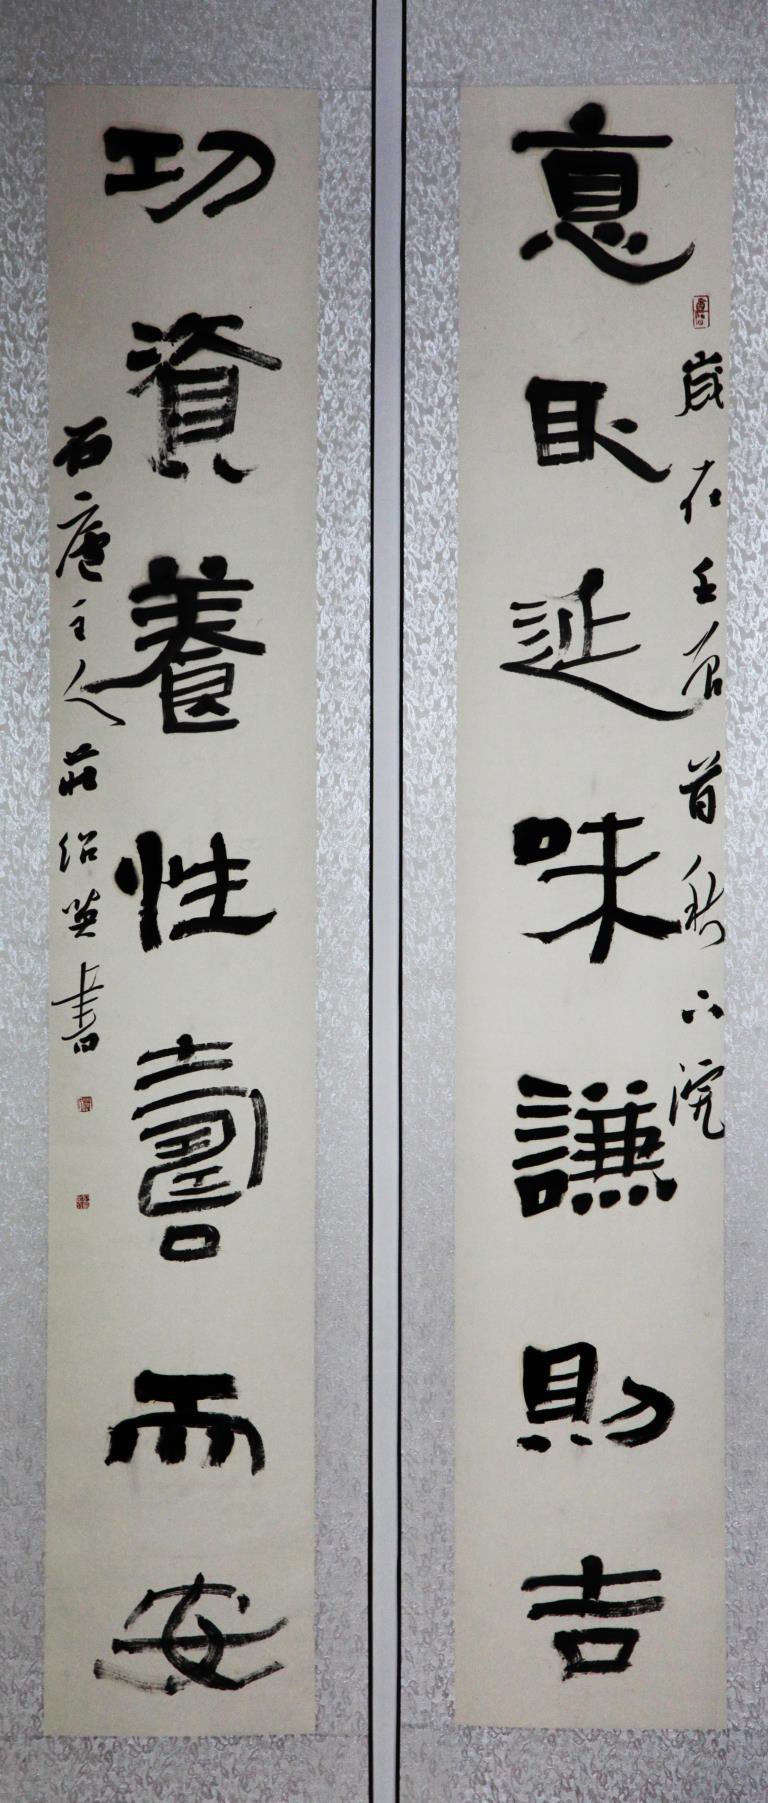 意取延味謙則吉
歲在壬辰首秋下浣
功資養性壽而安
石庵主人莊紹英書